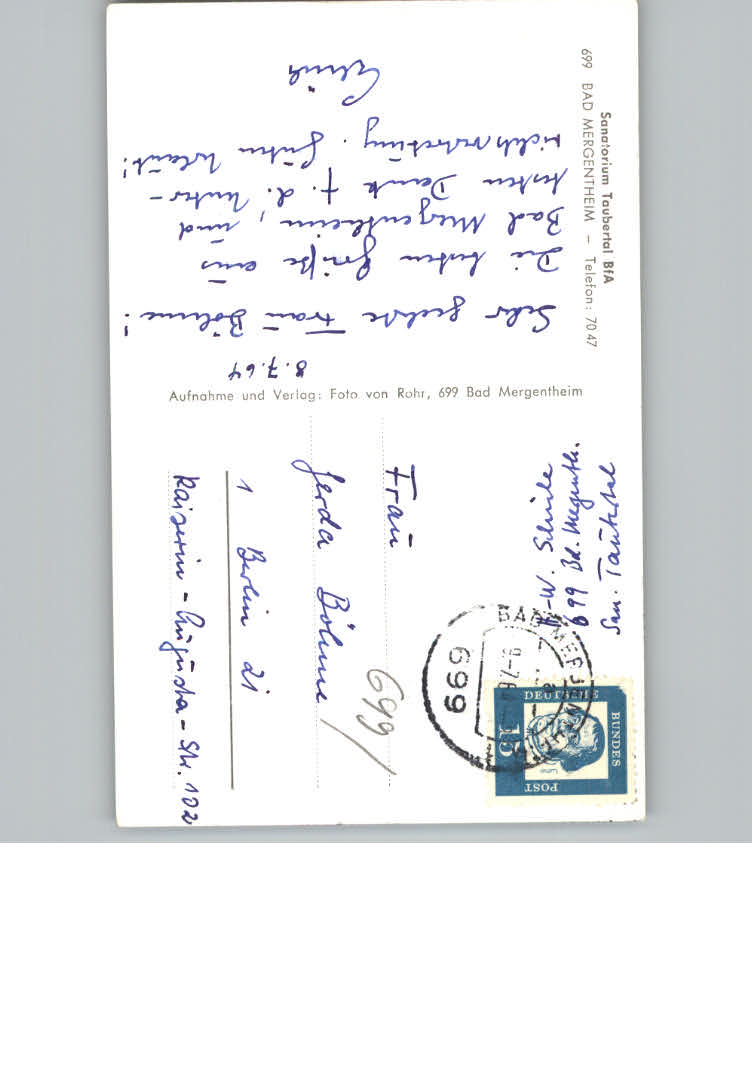 Sanatorium Taubertal BfA
699 BAD MERGENTHEIM – Telefon: 7047
8.7.64
Sehr geehrte Frau Böhme!
Die besten Grüße aus
Bad Mergentheim, und
besten Dank f. d. Unter-
richtsvertretung. Guten Urlaub!
Aufnahme und Verlag: Foto von Rohr, 699 Bad Mergentheim
699 Bd. Mergenth.
San. Taubertal
BAD MERGENTHEIM
699
DEUTSCHE
BUNDES
POST
15
Frau
Gerda Böhme
1 Berlin 21
Kaiserin-Augusta-Str. 102
699/